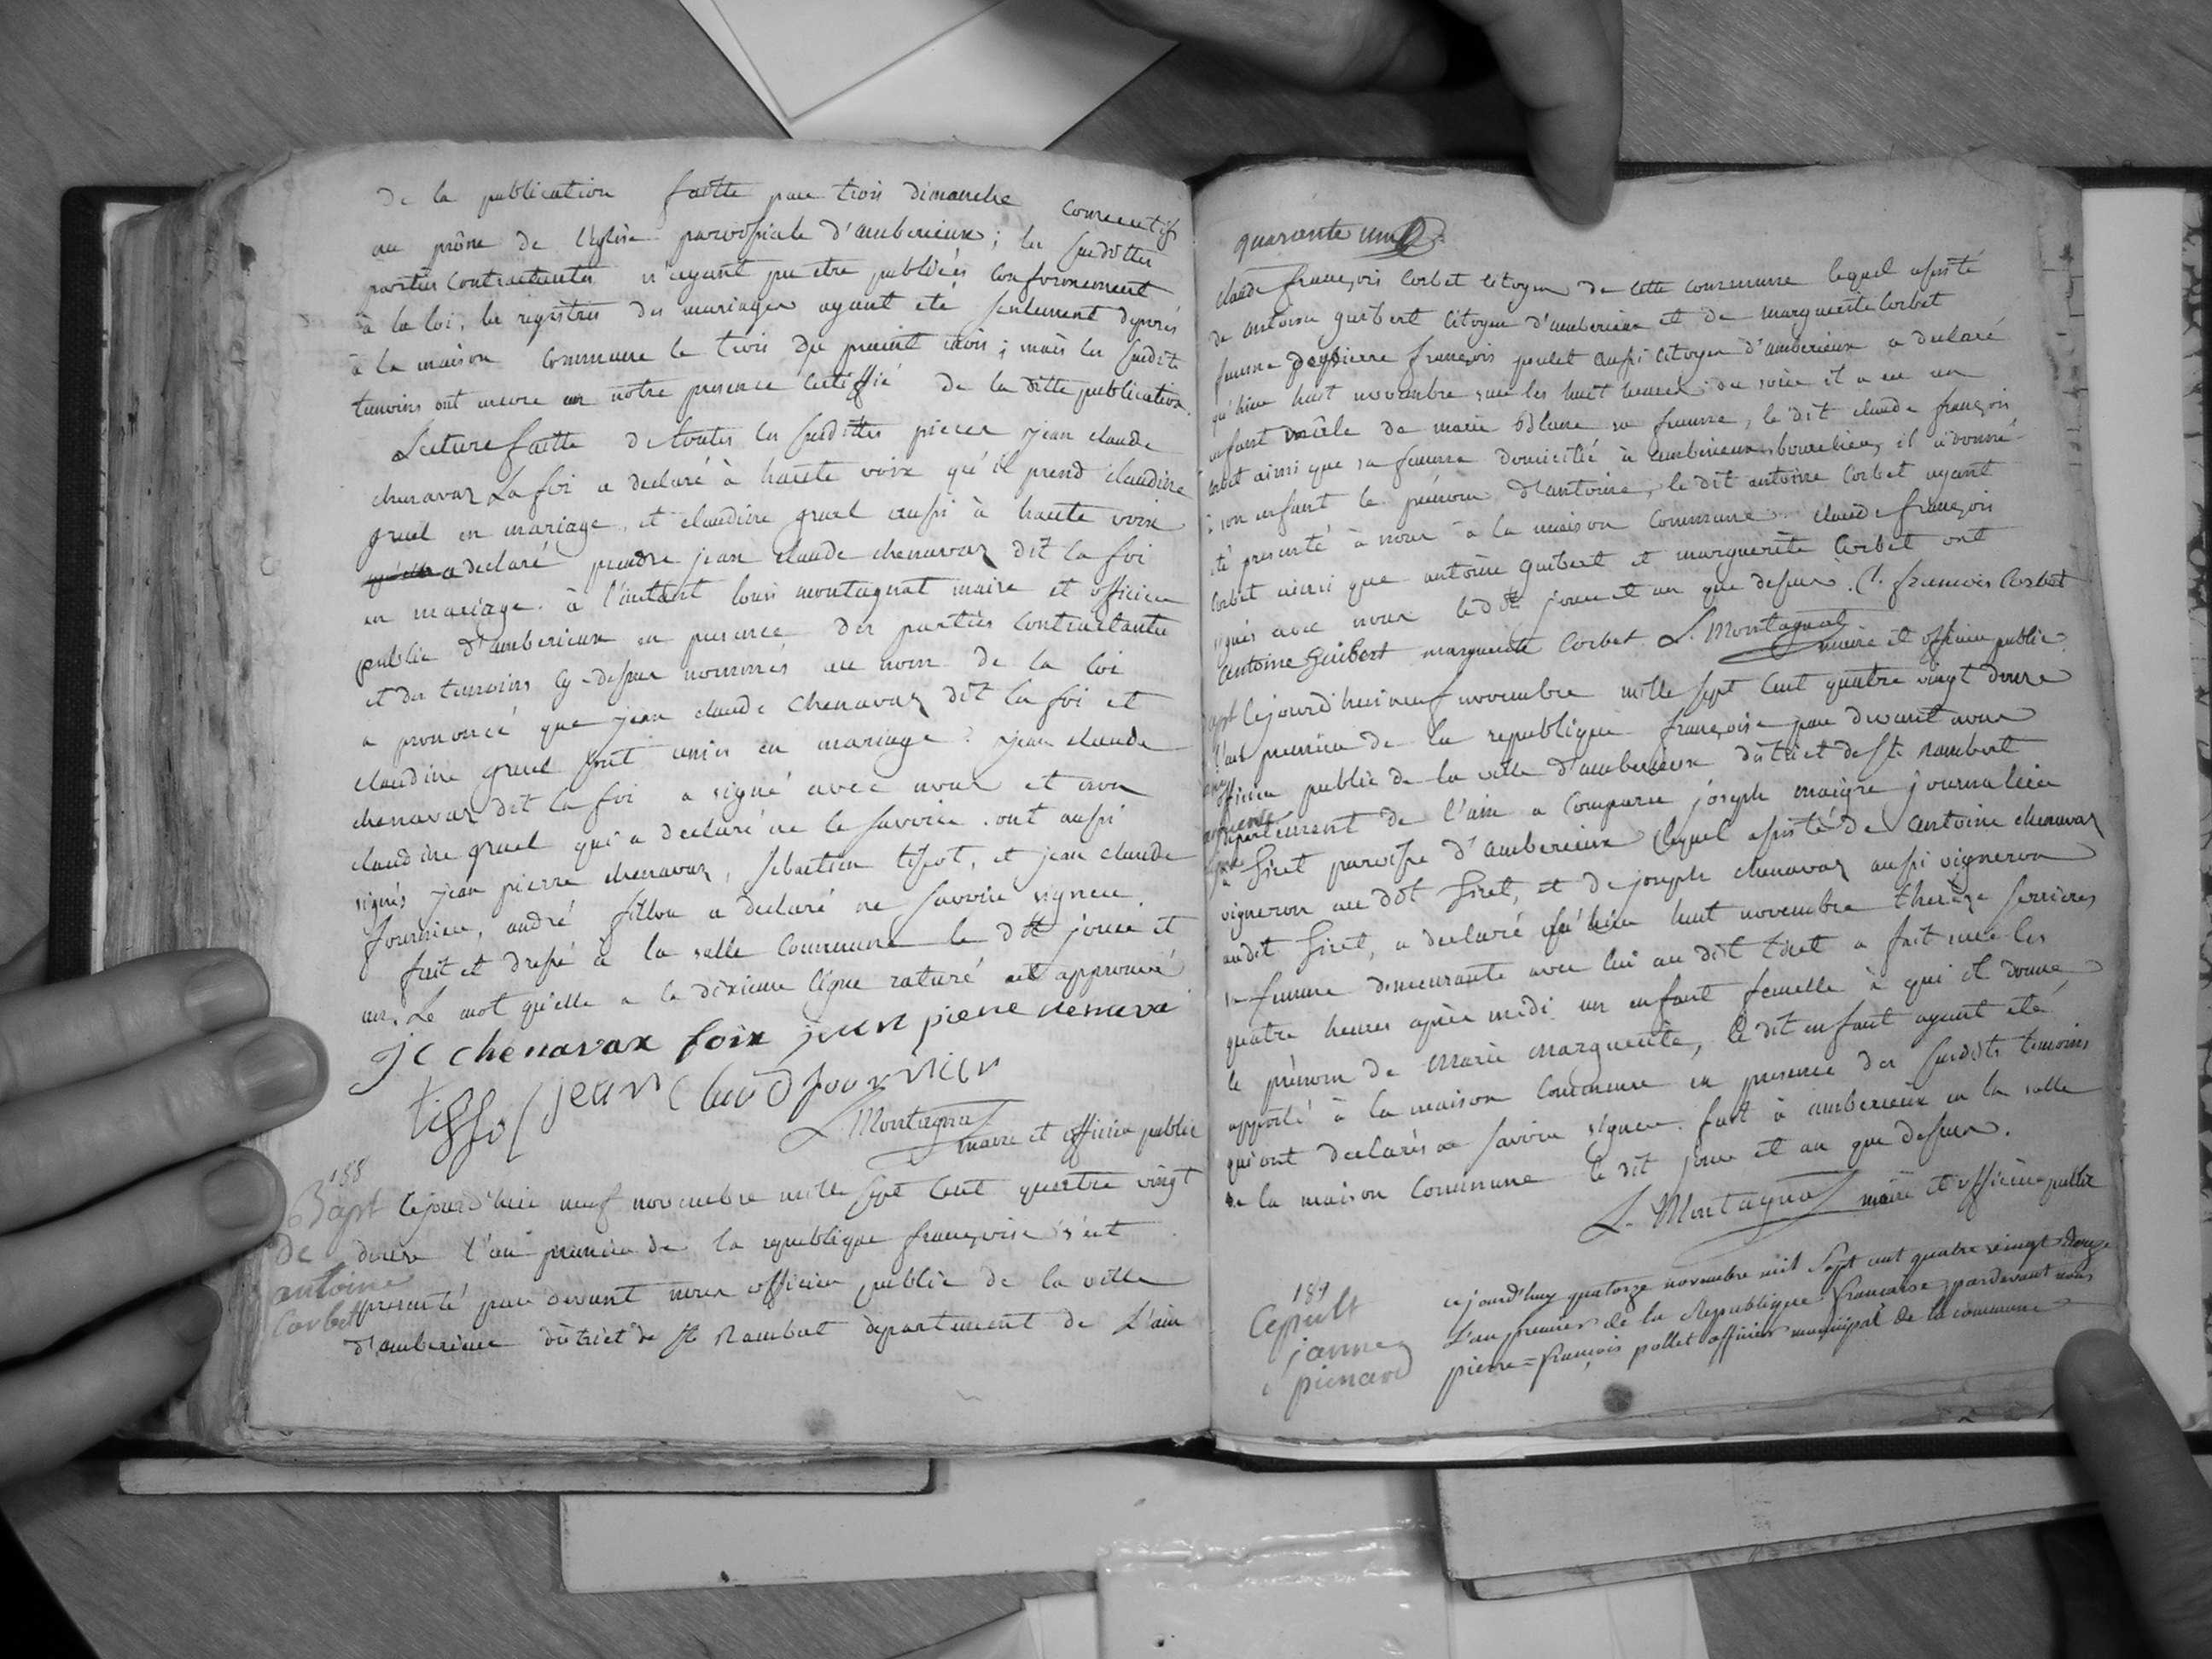 de la publication faitte par trois dimanche consecutifs
au prône de l'eglise paroissiale d'amberieux; les susdittes
parties contractantes n'ayant pu etre publiées conformement
à la loi, les registres des mariages ayant eté seulement deposés
à la maison commune le trois du present mois; mais les susdits
temoins ont encore en notre presence certiffié de la ditte publication.
Lecture faitte de toutes les susdittes pieces jean claude
chenavaz La foi a declaré à haute voix qu'il prend claudine
gruel en mariage, et claudine gruel aussi à haute voix
qu'elle a declaré prendre jean claude chenavaz dit la foi
en mariage. à l'instant louis montagnat maire et officier
public d'amberieux en presence des parties contractantes
et des temoins cy-dessus nommés au nom de la loi
a prononcé que jean claude chenavaz dit la foi et
claudine gruel sont unis en mariage. jean claude
chenavaz dit la foi a signé avec nous et non
claudine gruel qui a declaré ne le savoir. ont aussi
signés jean pierre chenavaz, sebastien tissot, et jean claude
fournier, andré fillon a declaré ne savoir signer.
fait et dressé à la salle commune le dit jour et
an. Le mot qu'elle a la dixieme ligne raturé est approuvé
JC chenavax foix jean pierre chenava
tissot jean claud fournier
L. Montagnat
maire et officier public
188
Bapt cejourd'hui neuf novembre mille sept cent quatre vingt
de douze l'an premier de la republique françoise s'est
antoine
corbet presenté par devant nous officier public de la ville
d'amberieux district de St Rambert departement de L'ain
quarante une
claude françois corbet citoyen de cette commune lequel assisté
de antoine guibert citoyen d'amberieux et de marguerite corbet
femme de pierre françois poulet aussi citoyen d'amberieux a declaré
qu'hier huit novembre sur les huit heures du soir il a eu un
enfant mâle de marie sa femme, le dit claude françois
corbet ainsi que sa femme domicilié à amberieux, il a donné
à son enfant le prénom d'antoine, le dit antoine corbet ayant
été presenté à nous à la maison commune. claude françois
corbet ainsi que antoine guibert et marguerite corbet ont
signés avec nous le dit jour et an que dessus. Cl. francois Corbet
antoine Guibert marguerite Corbet L. Montagnat
maire et officier public
bapt cejourd'hui neuf novembre mille sept cent quatre vingt douze
l'an premier de la republique françoise par devant nous
officier public de la ville d'amberieux district de St. rambert
departement de l'ain a comparu joseph maigre journalier
à tiret paroisse d'amberieux lequel assisté de antoine chenavaz
vigneron au dit tiret, et de joseph chenavaz aussi vigneron
audit tiret, a declaré qu'hier huit novembre therèze serrieres
sa femme demeurante avec lui au dit tiret a fait sur les
quatre heures après midi un enfant femelle à qui il donne
le prénom de marie marguerite, le dit enfant ayant eté
apporté à la maison commune en presence des susdits temoins
qui ont declarés ne savoir signer. fait à amberieux en la salle
de la maison commune le dit jour et an que dessus.
L. Montagnat maire et officier public
189
Cepult cejourd'huy quatorze novembre mil sept cent quatre vingt douze
janne L'an premier de la Republique francaise pardevant nous
pienard pierre=françois pollet officier municipal de la commune